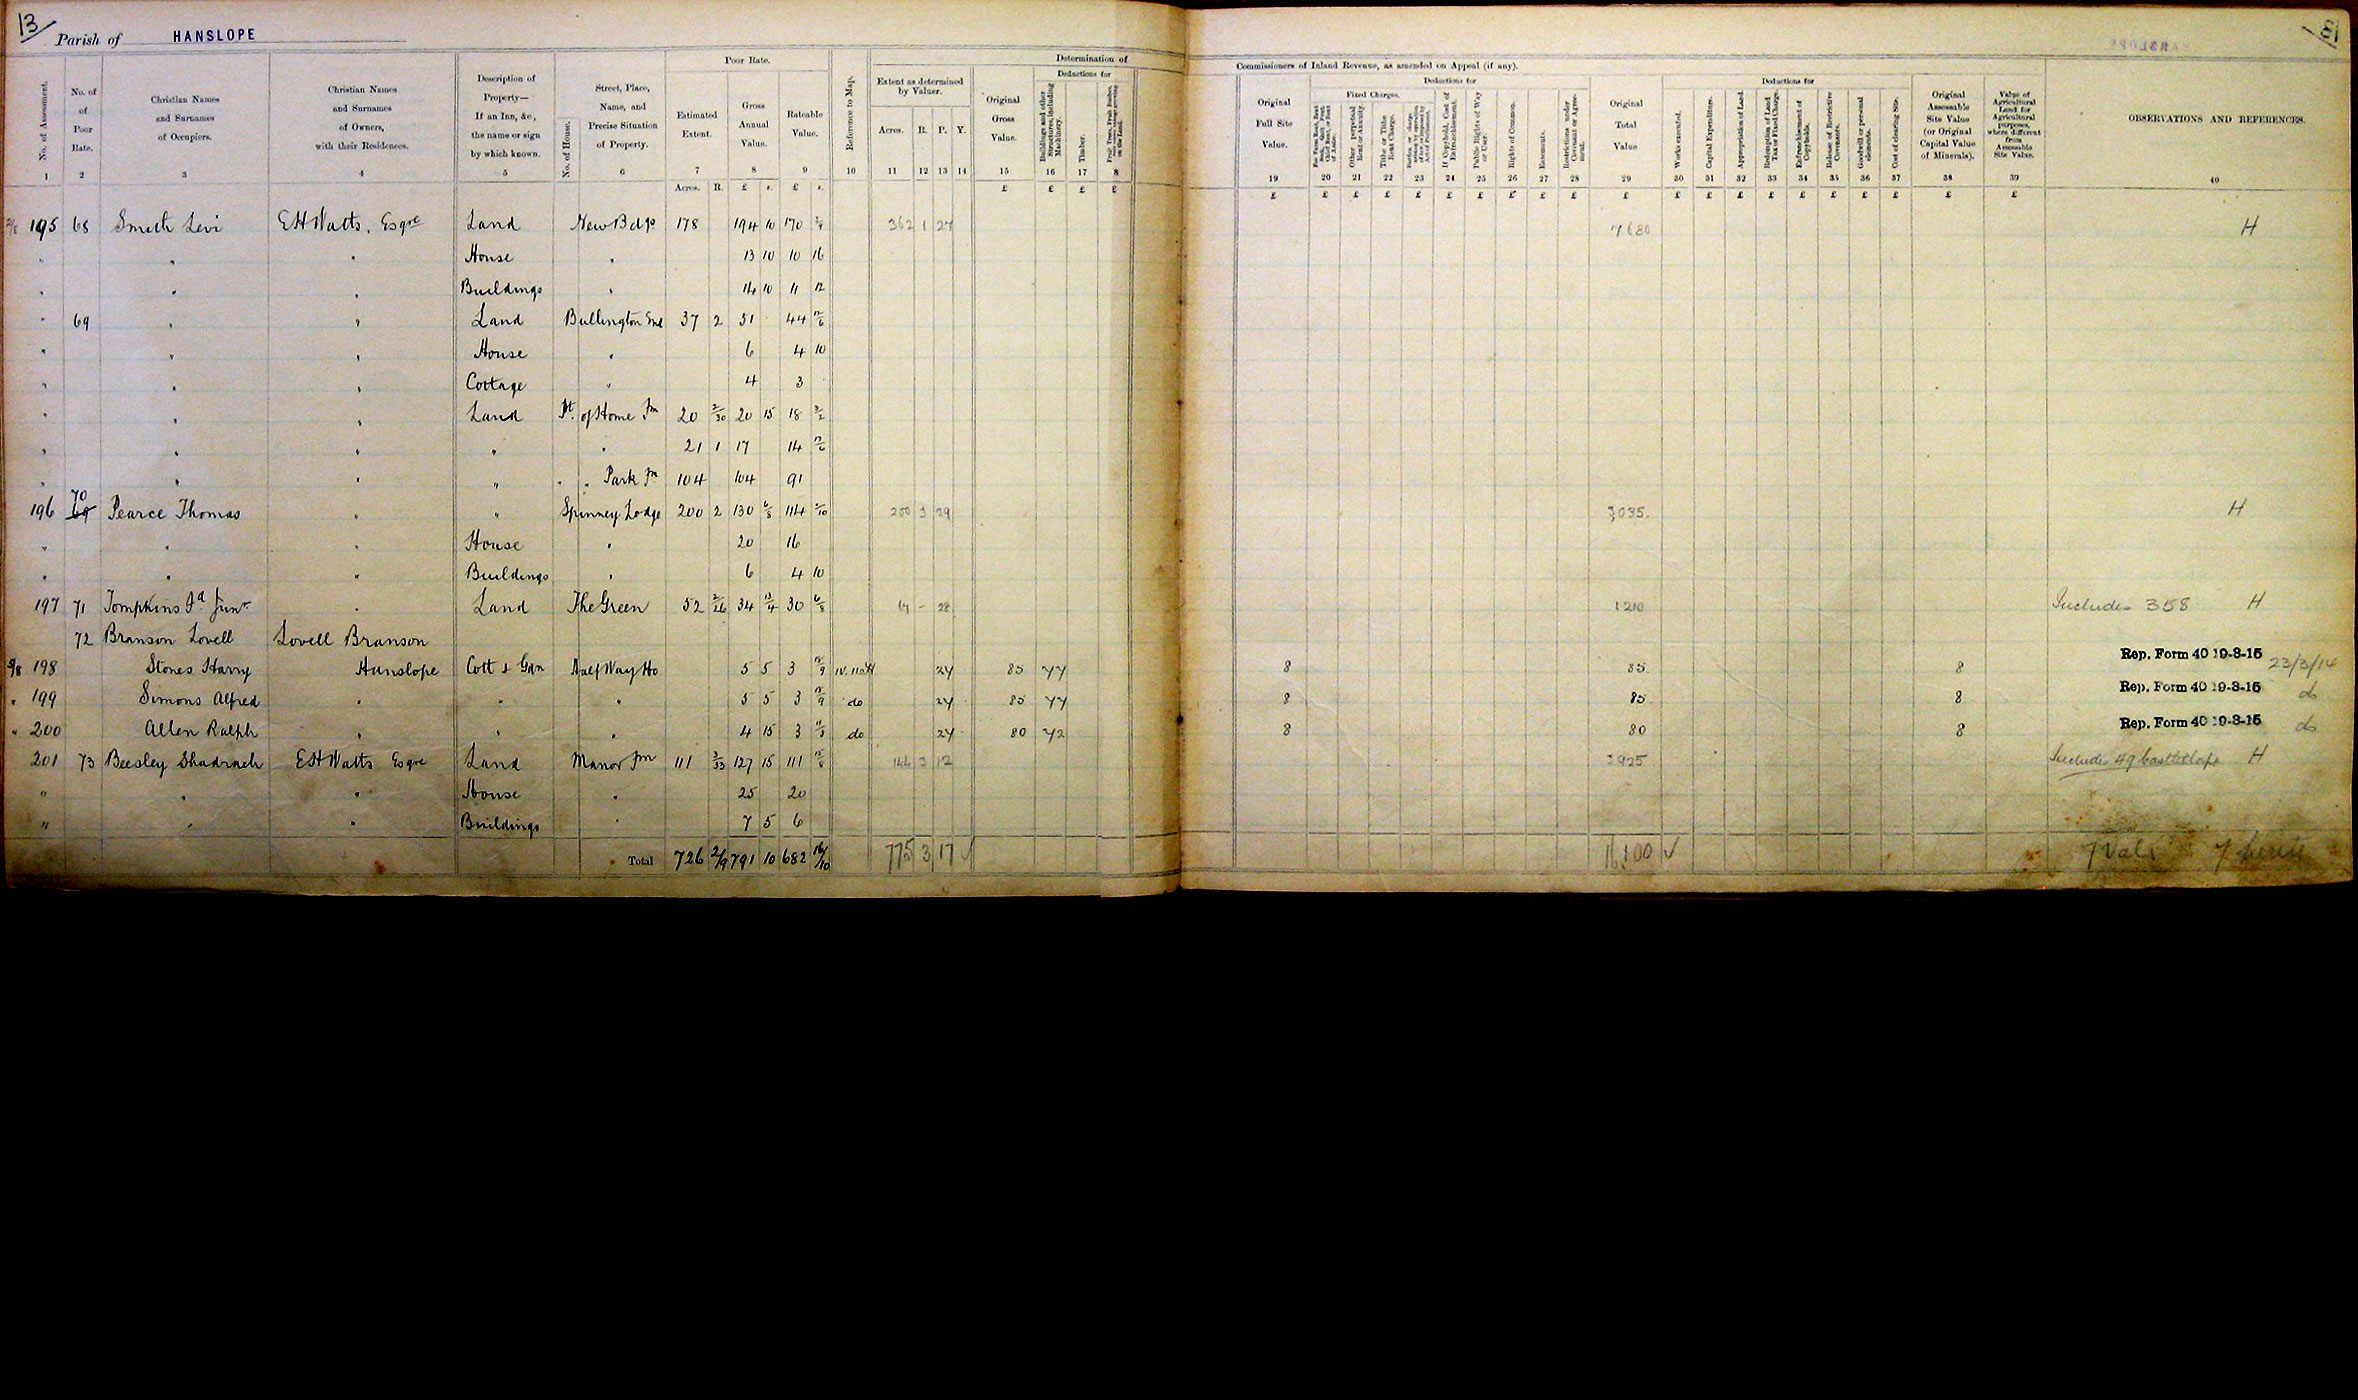 13
Parish of HANSLOPE
Poor Rate. Determination of
Commissioners of Inland Revenue, as amended on Appeal (if any).
No. of Assessment. No. of Poor Rate. Christian Names and Surnames of Occupiers. Christian Names and Surnames of Owners, with their Residences. Description of Property— If an Inn, &c., the name or sign by which known. No. of House. Street, Place, Name, and Precise Situation of Property. Estimated Extent. Gross Annual Value. Rateable Value. Reference to Map. Extent as determined by Valuer. Acres. R. P. Y. Original Gross Value. Deductions for Buildings and other Structures, including Machinery. Timber. Fruit Trees, Fruit Bushes, and other things growing on the Land.
Original Full Site Value. Deductions for Fixed Charges. Other perpetual Rent or Annuity Tithe or Tithe Rent Charge. If Copyhold, Cost of Enfranchisement. Public Rights of Way or User. Rights of Common. Easements. Restrictions under Covenant or Agreement. Original Total Value Deductions for Works executed. Capital Expenditure. Appropriation of Land. Redemption of Land Tax or Fixed Charge. Enfranchisement of Copyholds. Release of Restrictive Covenants. Goodwill or personal elements. Cost of clearing Site. Original Assessable Site Value (or Original Capital Value of Minerals). Value of Agricultural Land for Agricultural purposes, where different from Assessable Site Value. OBSERVATIONS AND REFERENCES.
1 2 3 4 5 6 7 8 9 10 11 12 13 14 15 16 17 8
19 20 21 22 23 24 25 26 27 28 29 30 31 32 33 34 35 36 37 38 39 40
Acres. R. £ s. £ s. £ £ £ £
£ £ £ £ £ £ £ £ £ £ £ £ £ £ £ £ £ £ £ £ £
195 68 Smith Levi E H Watts, Esqre Land New Bdgs 178 194 10 170 362 1 27 7680 H
" " " House " 13 10 10 16
" " " Buildings " 14 10 11 12
" 69 " " Land Bullington End 37 2 51 44 12/6
" " " House " 6 4 10
" " " Cottage " 4 3
" " " Land Pt. of Home Fm 20 2/30 20 15 18 3/2
" " " " " 21 1 17 14 17/6
" " " " " " Park Fm 104 104 91
196 70 69 Pearce Thomas " " Spinney Lodge 200 2 130 6/8 114 2/10 200 3 29 3035. H
" " " House " 20 16
" " " Buildings " 6 4 10
197 71 Tompkins Jd Junr " Land The Green 52 2/26 34 13/4 30 6/8 - 28 1210 Includes 358 H
72 Branson Lovell Lovell Branson
198 Stones Harry Hanslope Cott & Gdn Half Way Ho 5 5 3 24 85 77 8 85 8 Rep. Form 40 19-3-15 23/3/14
" 199 Simons Alfred " " " 5 5 3 do 24 85 77 8 85 8 Rep. Form 40 19-3-15 do
" 200 Allen Ralph " " " 4 15 3 do 24 80 72 8 80 8 Rep. Form 40 19-3-15 do
201 73 Beesley Shadrach E H Watts Esqre Land Manor Fm 111 3/33 127 15 111 15/8 144 3 12 2925 Includes 49 Castlethorpe H
" " " House " 25 20
" " " Buildings " 7 5 6
Total 726 2/9 791 10 682 16/10 775 3 17 ✓ 16,100 ✓ 7 Vals